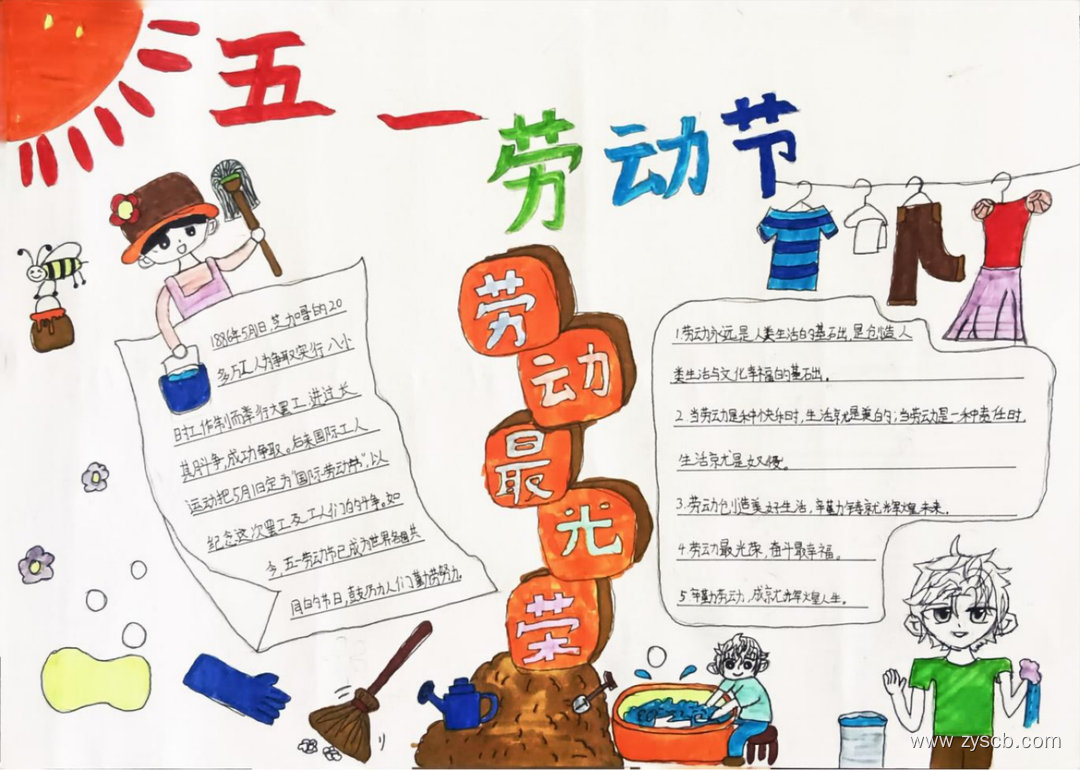 五一劳动节
劳动最光荣
1886年5月1日,芝加哥的20
多万工人为争取实行八小
时工作制而举行大罢工,讲过长
其月斗争,成功争取。后来国际工人
运动把5月1日定为“国际劳动节”,以
纪念这次罢工及工人们的斗争。如
今,五一劳动节已成为世界各国共
同的节日,鼓励人们勤劳努力.
1.劳动永远是人类生活的基础,是创造人
类生活与文化幸福的基础.
2.当劳动是种快乐时,生活就是美的;当劳动是一种责任时,
生活就是奴役。
3.劳动创造美好生活,辛勤铸就辉煌未来.
4.劳动最光荣,奋斗最幸福。
5.辛勤劳动,成就辉煌人生。
www.zyscb.com